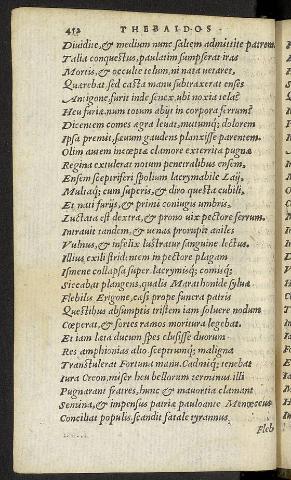 452 THEBAIDOS
Diuidite, & medium nunc saltem admittite patrem.
Talia conquestus, paulatim sumpserat iras
Mortis, & occulte telum, ni nata uetaret,
Quærebat. sed casta manu subtraxerat enses
Antigone, furit inde senex, ubi noxia tela?
Heu furiæ, num totum abijt in corpora ferrum?
Dicentem comes ægra leuat, mutumq; dolorem
Ipsa premit, sæuum gaudens planxisse parentem.
Olim autem inceptæ clamore exterrita pugnæ
Regina extulerat notum penetralibus ensem,
Ensem sceptriferi spolium lacrymabile Laij,
Multaq; cum superis, & diro questa cubili,
Et nati furijs, & primi coniugis umbris,
Luctata est dextra, & prono uix pectore ferrum
Intrauit tandem, & uenas prorupit aniles
Vulnus, & infelix lustratur sanguine lectus.
Illius exili strid: nem in pectore plagam
Ismene collapsa super. lacrymisq; comisq;
Siccabat plangens, qualis Marathonide sylua
Flebilis Erigone, cæsi prope funera patris
Questibus absumptis tristem iam soluere nodum
Cœperat, & fortes ramos moritura legebat.
Et iam læta ducum spes elusisse duorum
Res amphionias alio sceptrumq; maligna
Transtulerat Fortuna manu. Cadmiq; tenebat
Iura Creon, miser heu bellorum terminus. illi
Pugnarant fratres, hunc & mauortia clamant
Semina, & impensus patriæ paulo ante Menœceus
Conciliat populis, scandit fatale tyrannus
Fleb